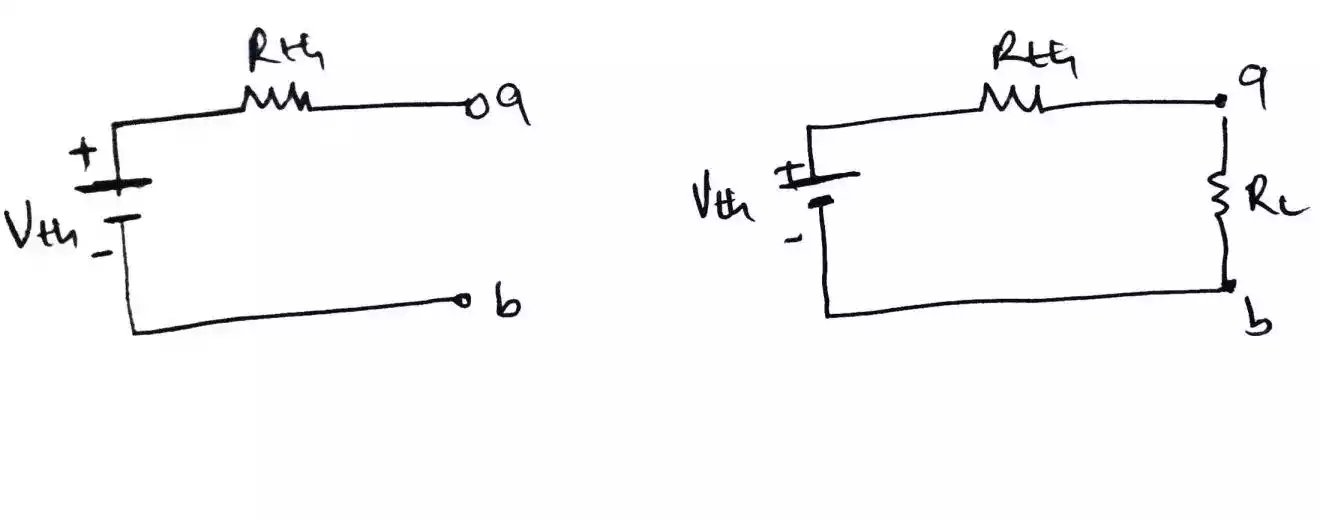 Rth
a
+
Vth
-
b
Rth
a
+
Vth
-
RL
b